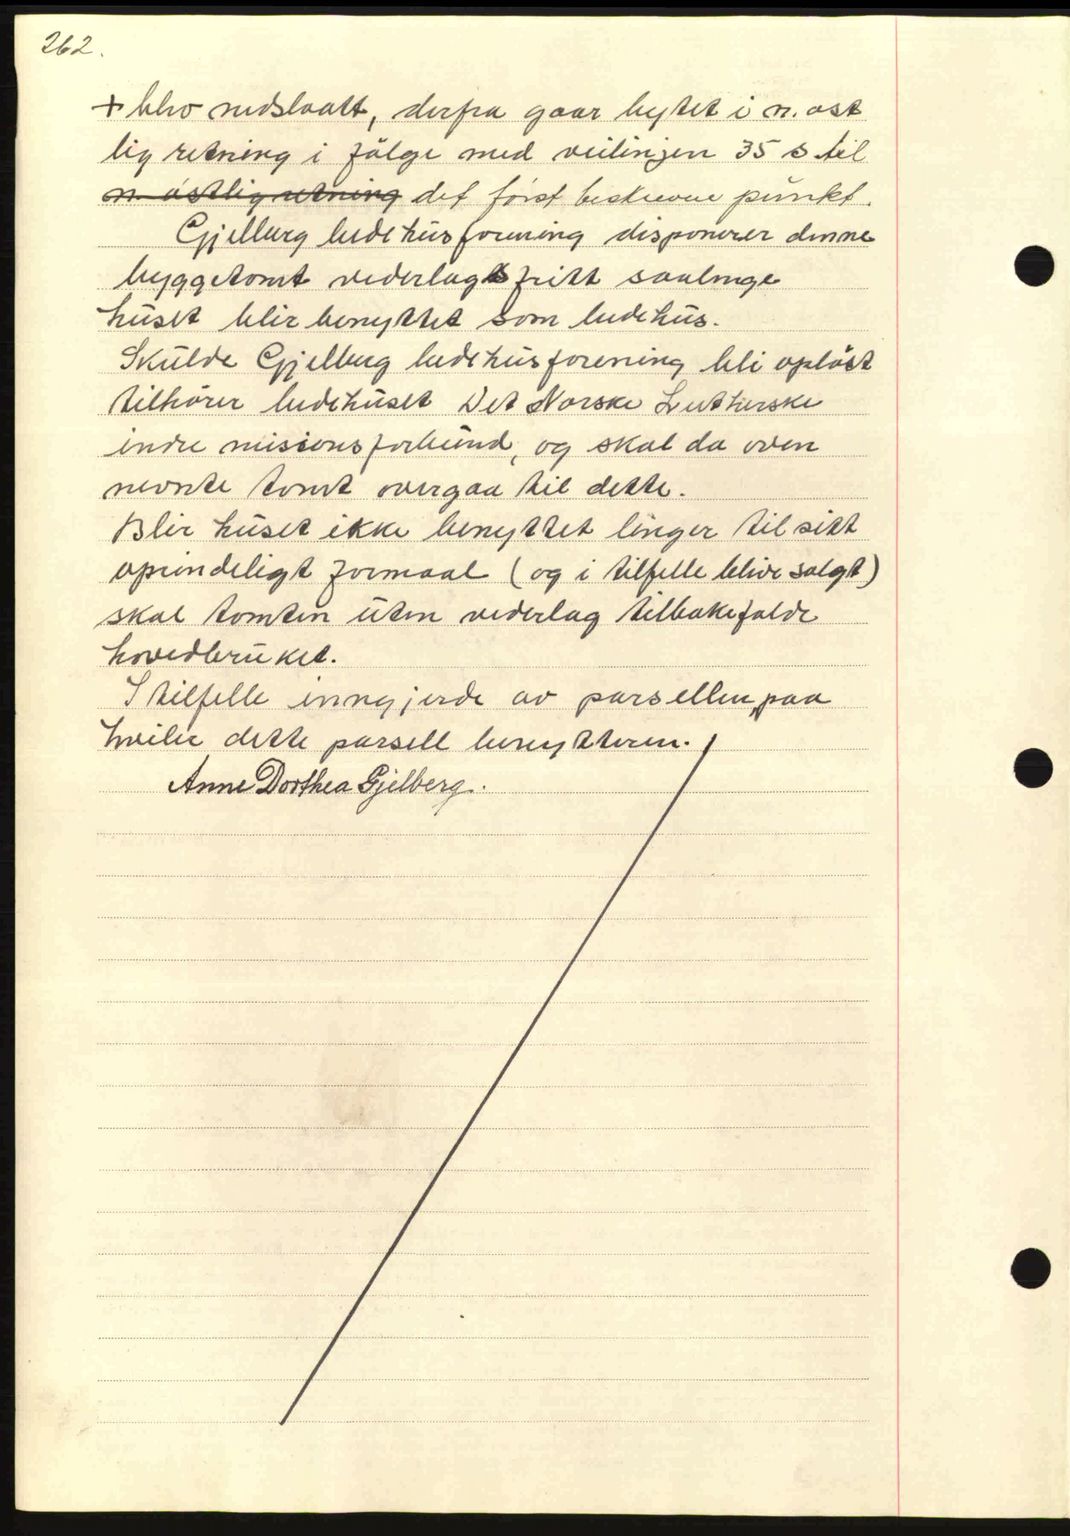 262.
+ blev nedslaatt, derfra gaar bytet i n. øst
lig retning i følge med veilinjen 35 s til
n. østlig retning det først beskrevne punkt.
Gjelberg bedehusforening disponerer denne
byggetomt vederlagsfritt saalenge
huset blir benyttet som bedehus.
Skulde Gjelberg bedehusforening bli opløst
tilhører bedehuset Det Norske Lutherske
indre misionsforbund, og skal da oven
nevnte tomt overgaa til dette.
Blir huset ikke benyttet linger til sitt
oprindeligt formaal (og i tilfelle blive solgt)
skal tomten uten vederlag tilbakefalde
hovedbruket.
I tilfelle inngjerde av parsellen, paa
hviler dette parsell benytteren.
Anne Dorthea Gjelberg.